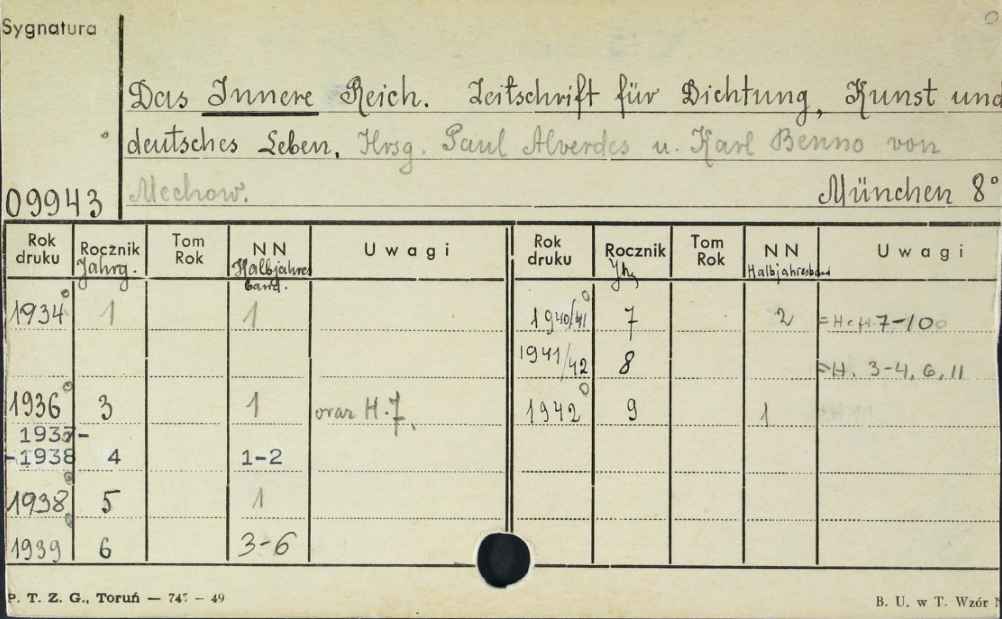 Sygnatura
Das Innere Reich. Zeitschrift für Dichtung, Kunst und
deutsches Leben. Hrsg. Paul Alverdes u. Karl Benno von
09943 Mechow. München 8°
Rok druku Rocznik Jahrg. Tom Rok NN Halbjahresband. Uwagi Rok druku Rocznik Jhg Tom Rok NN Halbjahresband Uwagi
1934 1 1 1940/41 7 2 =H. 7-10
1941/42 8 =H. 3-4, 6, 11
1936 3 1 oraz H. 7. 1942 9 1
1937-
-1938 4 1-2
1938 5 1
1939 6 3-6
P. T. Z. G., Toruń — 747 — 49 B. U. w T. Wzór